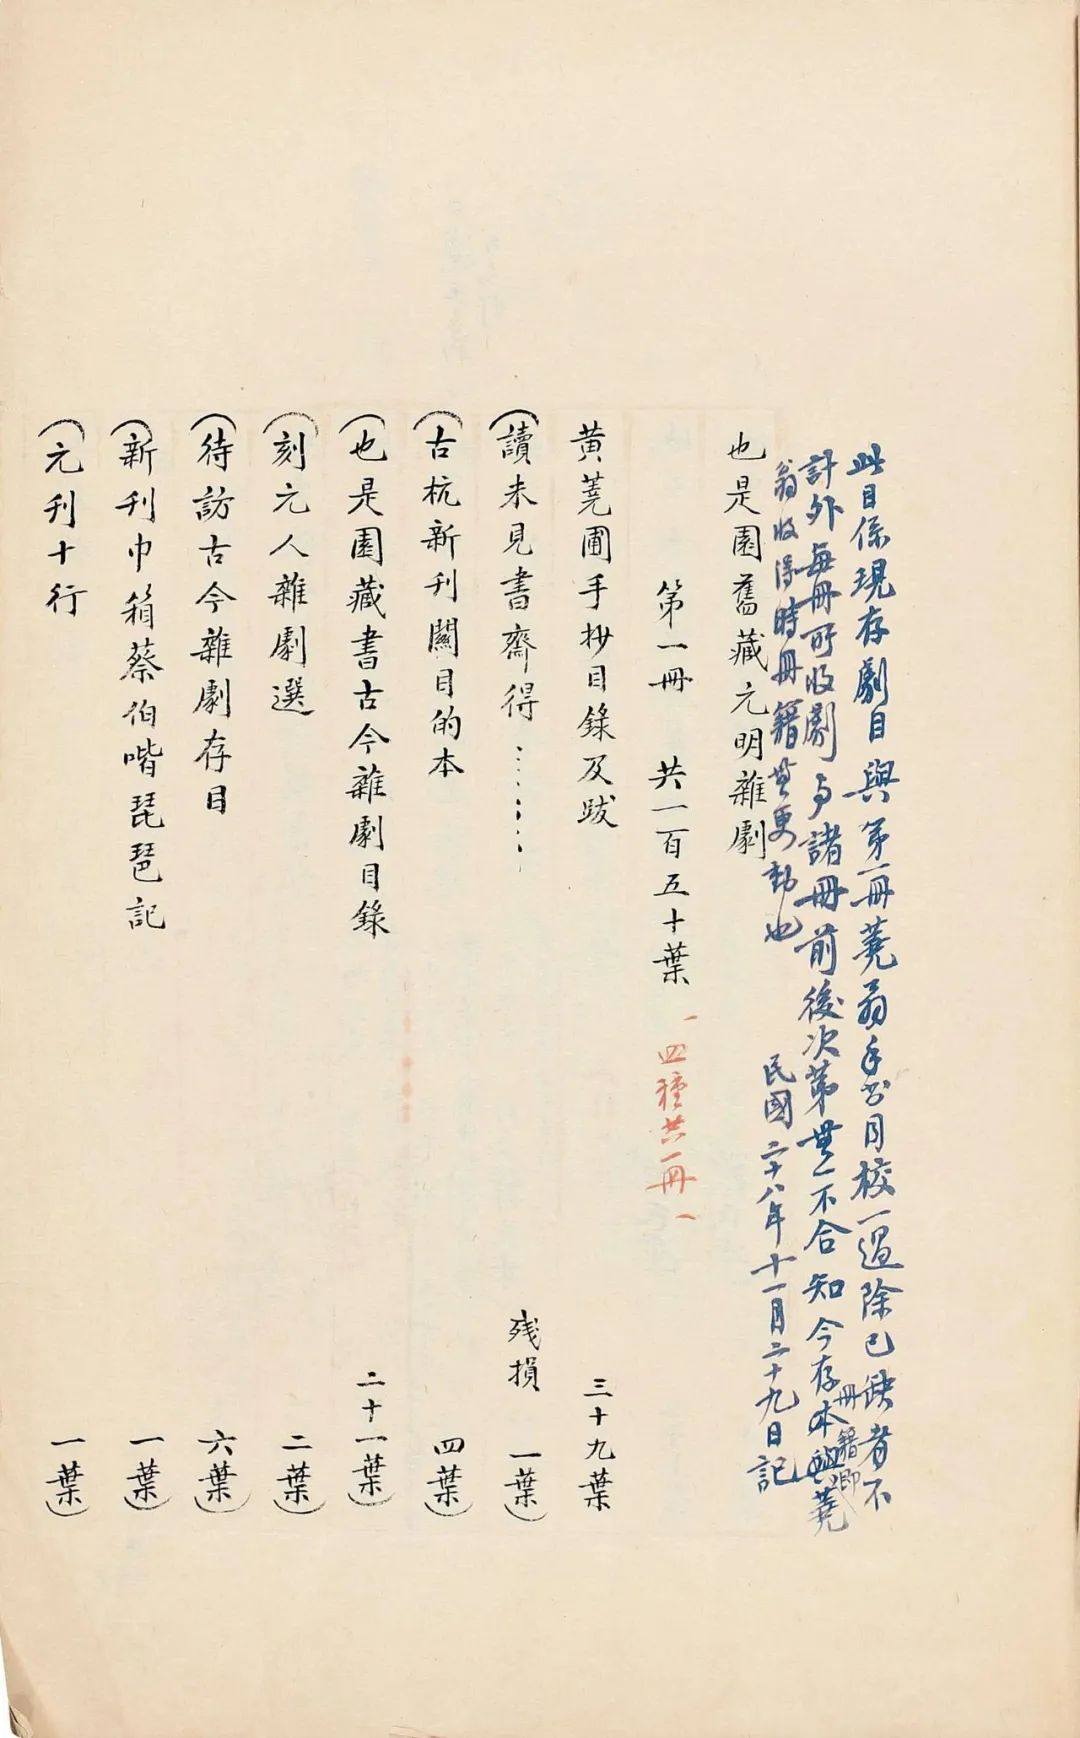 此目係現存劇目與第一冊蕘翁手書目校一過除已缺者不
計外每冊所收劇与諸冊前後次第無一不合知今存本冊籍即蕘
翁收得時冊籍無更動也
民國二十八年十一月二十九日記
也是園舊藏元明雜劇
第一冊 共一百五十葉 (四種共一冊)
黃蕘圃手抄目錄及跋 三十九葉
(讀未見書齋得…… 殘損 一葉)
(古杭新刊關目的本 四葉)
(也是園藏書古今雜劇目錄 二十一葉)
(刻元人雜劇選 二葉)
(待訪古今雜劇存目 六葉)
(新刊巾箱蔡伯喈琵琶記 一葉)
(元刊十行 一葉)